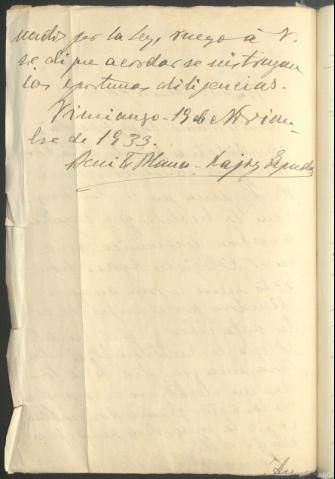 nados por la Ley, ruego á V.
se digne acordar se instruyan
las oportunas diligencias.
Pimiango - 19 de Noviem-
bre de 1933.
Benito